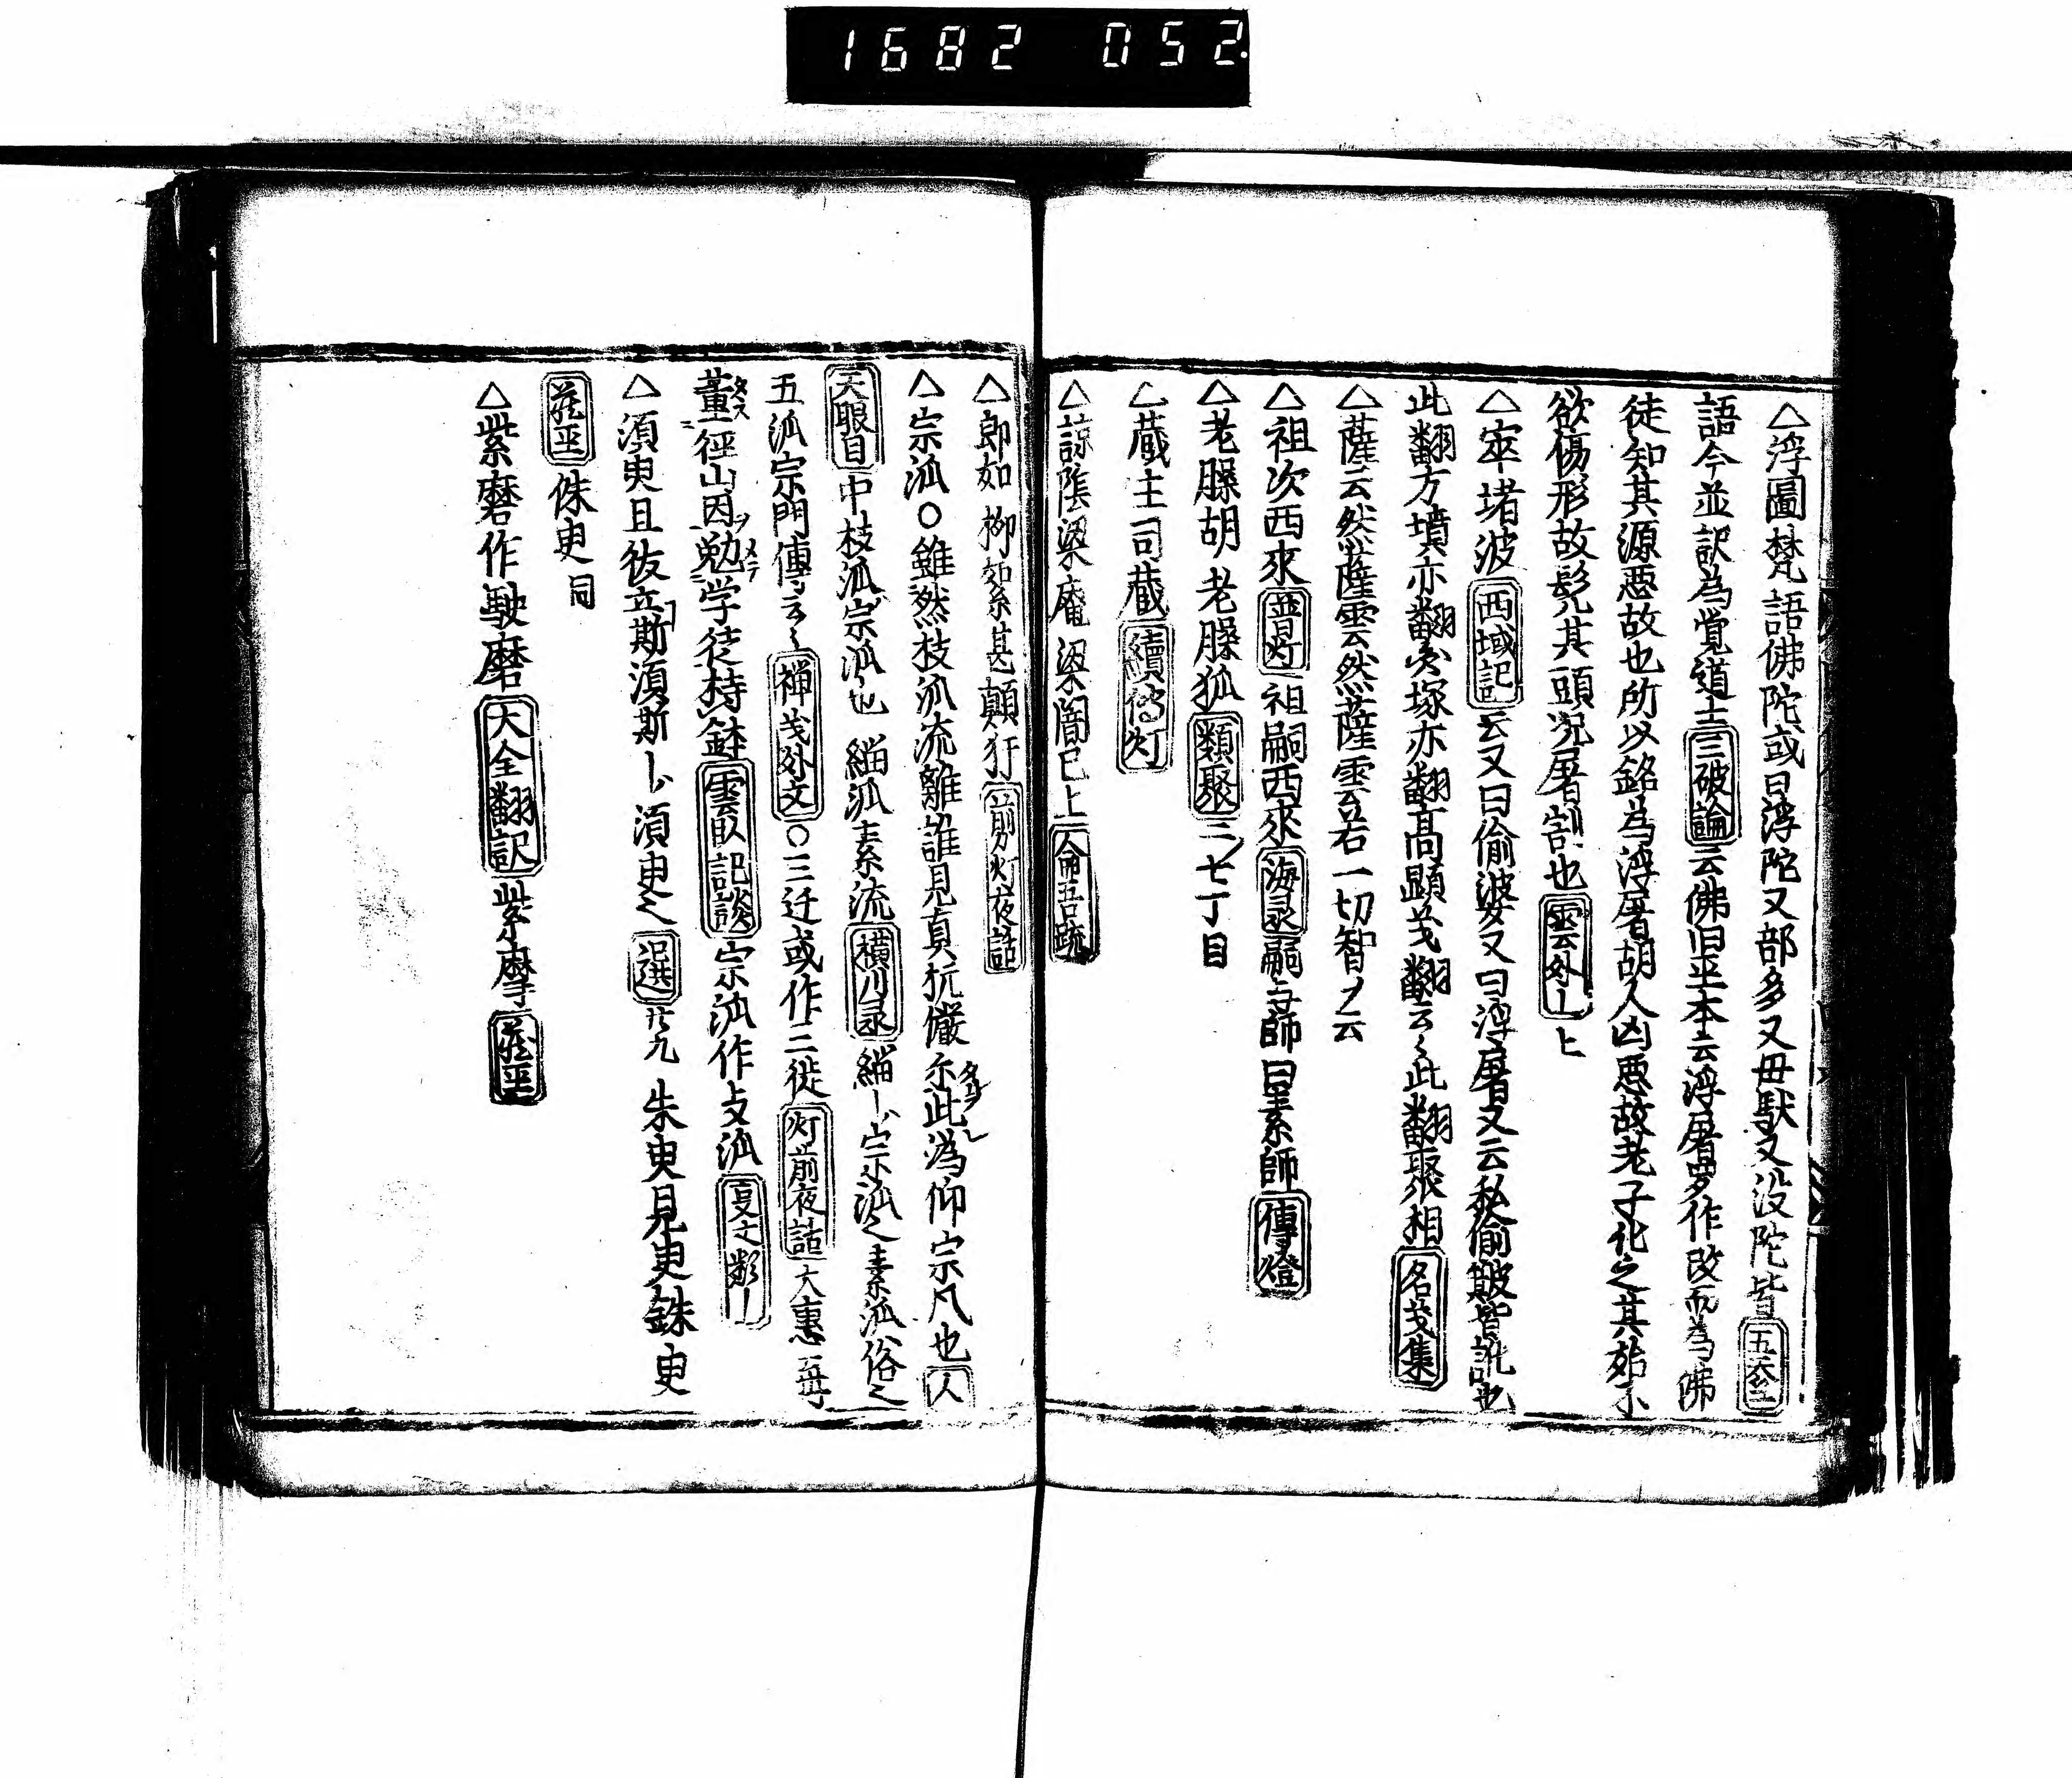 1682 052
△浮圖梵語佛陀或曰浮陀又部多又毋馱又没陀皆五
語今並訳為覚道士三破論云佛旧平本云浮屠罗作改而為佛
徒知其源悪故也所以銘為浮屠胡人凶悪故老子化之其始不
欲傷形故髡其頭况屠割也雲外上
△窣堵波西域記云又曰偷婆又曰浮屠又云私偷簸皆訛也
此翻方墳亦翻塚亦翻髙顕翻云〻此翻聚相名義集
△薩云然薩雲云然薩雲若一切智ノ云
△祖次西來普灯祖嗣西來海录嗣与師曰素師傳燈
△老臊胡老臊狐類聚三ノ七丁目
△蔵主司蔵續傳灯
△諒隂梁庵梁闇已上
△郎如柳如絮甚顛狂前灯夜話
△宗泒〇雖然枝泒流離誰見真抗儼示此潙仰宗凡也人
天眼目中枝泒宗泒也緇泒素流横川录緇宗泒之素泒俗之
五泒宗門傳云〻禅文〇三迁或作二徙灯前夜話大惠再
董徑山因勉学徒持鉢雲臥記談宗泒作攴泒
△湏臾且彼立斯湏斯湏臾之選廿九朱臾見臾銖臾
侏臾同
△紫磨作駛磨大全翻訳紫摩